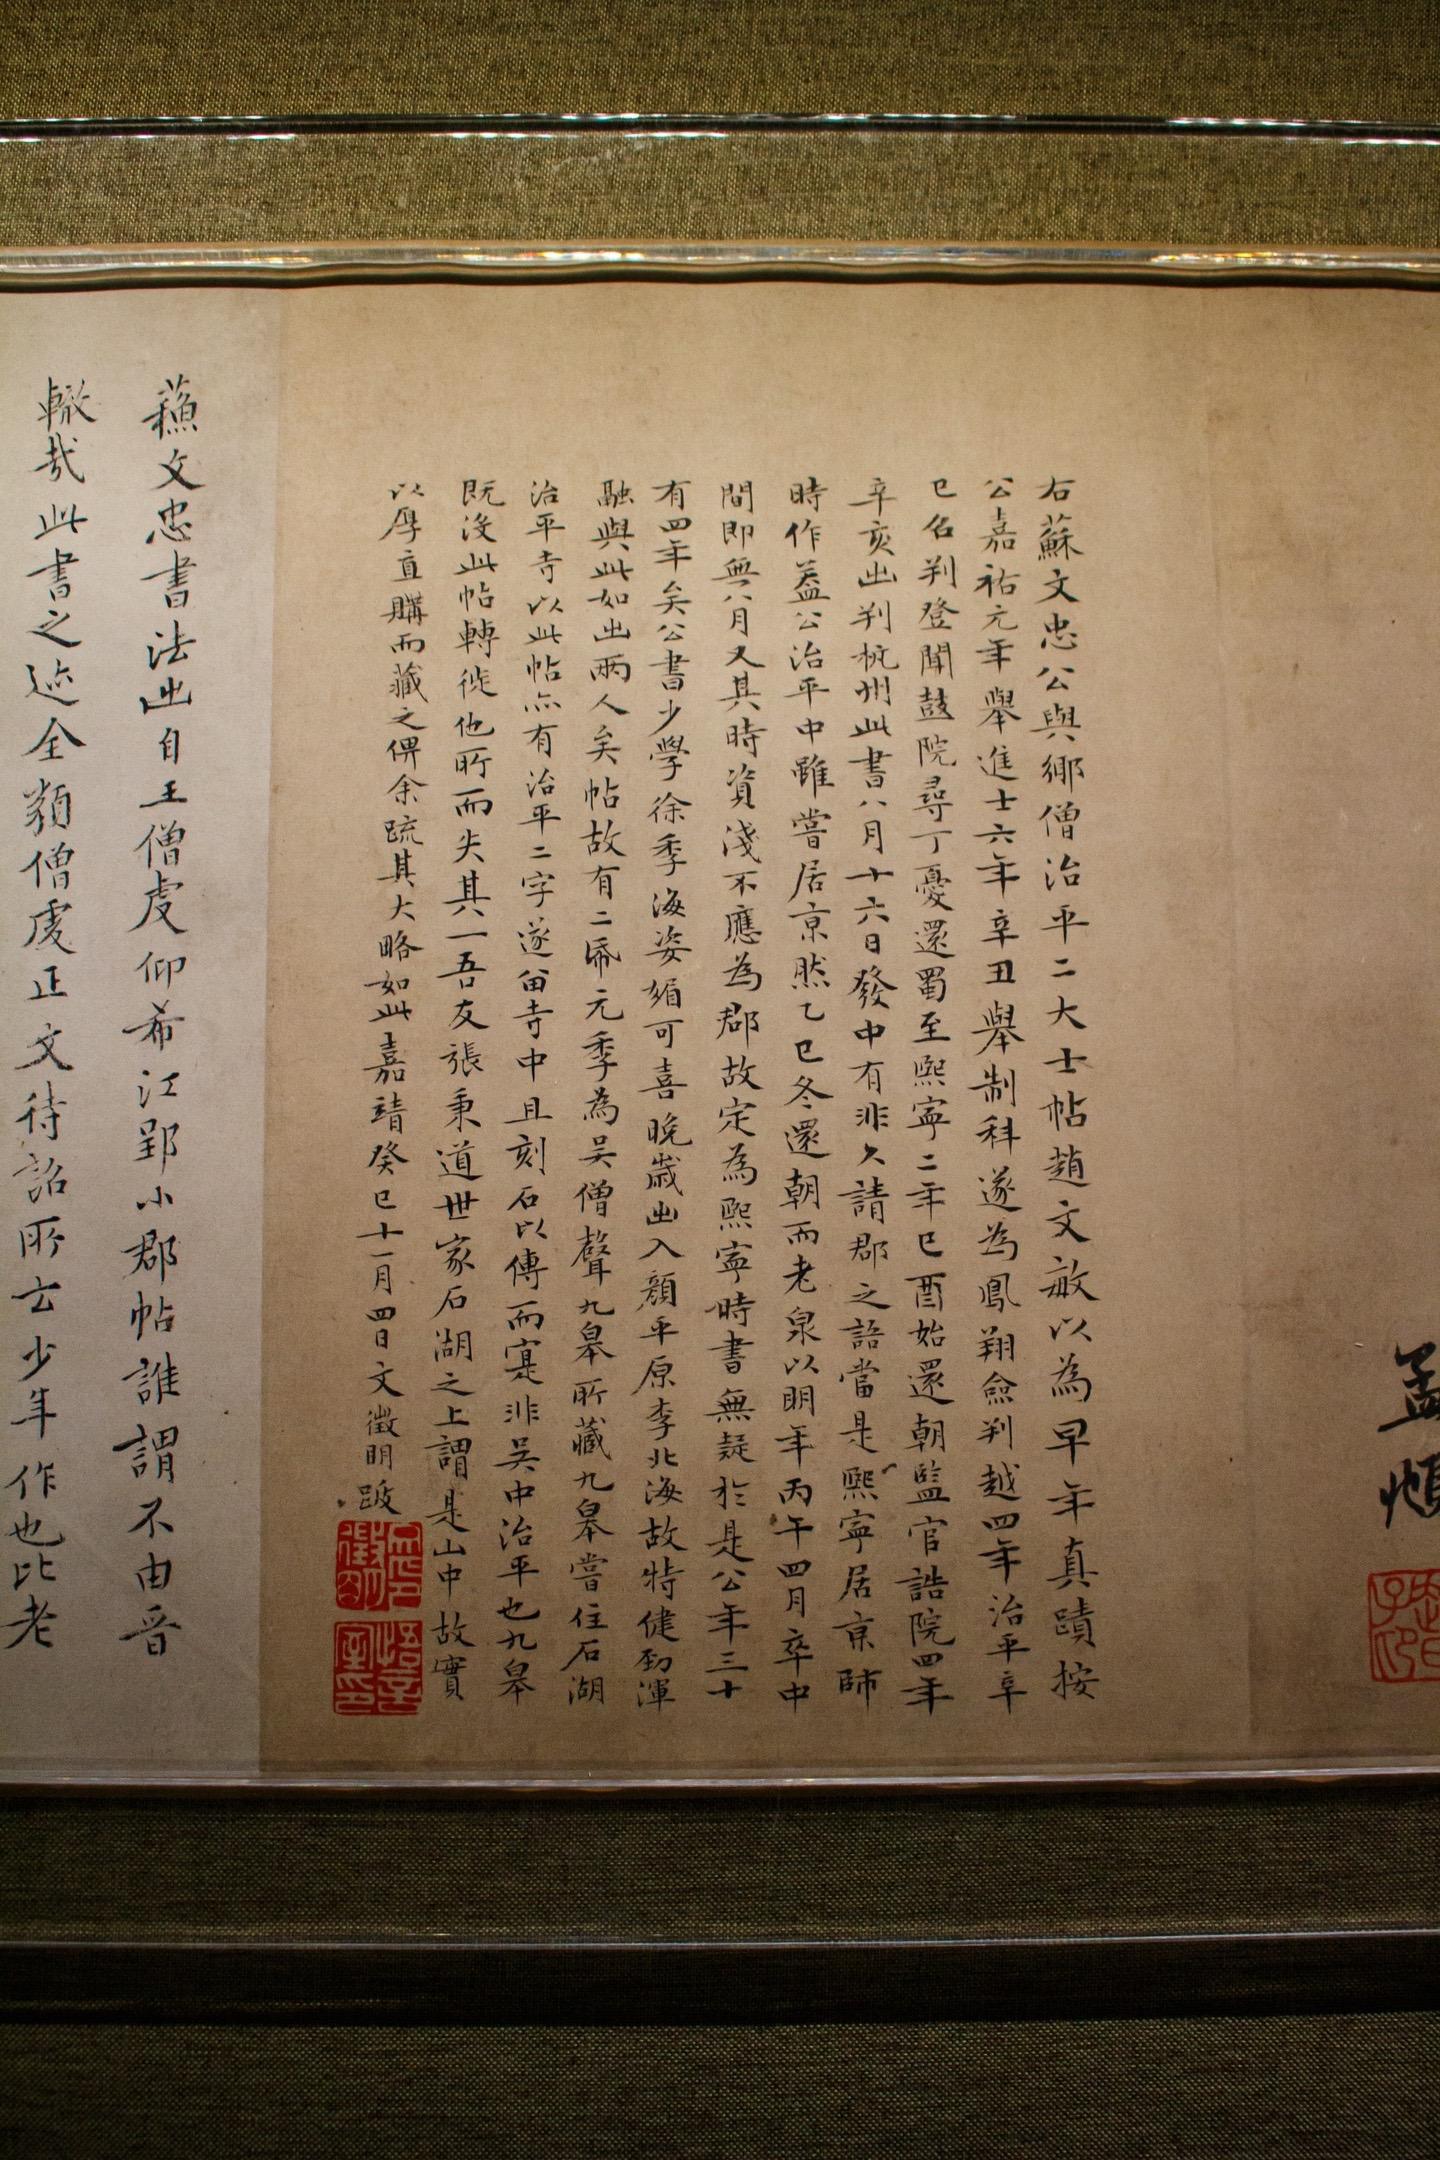 孟頫
右蘇文忠公與鄉僧治平二大士帖趙文敏以為早年真蹟按
公嘉祐元年舉進士六年辛丑舉制科遂為鳳翔僉判越四年治平辛
巳名判登聞鼓院尋丁憂還蜀至熙寧二年已酉始還朝監官誥院四年
辛亥出判杭州此書八月十六日發中有非久請郡之語當是熙寧居京師
時作蓋公治平中雖嘗居京然乙巳冬還朝而老泉以明年丙午四月卒中
間即無八月又其時資淺不應為郡故定為熙寧時書無疑於是公年三十
有四年矣公書少學徐季海姿媚可喜晚歲出入顏平原李北海故特健勁渾
融與此如出兩人矣帖故有二帋元季為吳僧聲九皋所藏九皋嘗住石湖
治平寺以此帖亦有治平二字遂留寺中且刻石以傳而寔非吳中治平也九皋
既沒此帖轉徙他所而失其一吾友張秉道世家石湖之上謂是山中故實
以厚直購而藏之俾余疏其大略如此嘉靖癸巳十一月四日文徵明跋
蘇文忠書法出自王僧虔仰希江郢小郡帖誰謂不由晉
轍哉此書之迹全類僧虔正文待詔所云少年作也比老